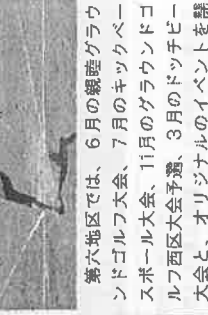 第六地区では、６月の親睦グラウ
ンドゴルフ大会、７月のキックベー
スボール大会、11月のグラウンドゴ
ルフ西区大会予選、３月のドッチビー
大会と、オリジナルのイベントを開